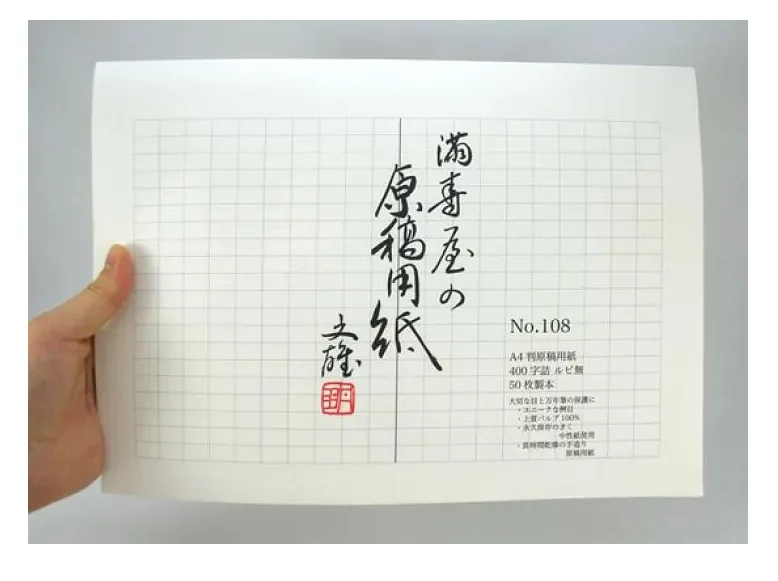 満寿屋の
原稿用紙
文雄
No.108
A4判原稿用紙
400字詰 ルビ無
50枚製本
大切な目と万年筆の保護に
・ユニークな罫目
・上質パルプ100%
・永久保存のきく
中性紙使用
・長時間乾燥の手造り
原稿用紙